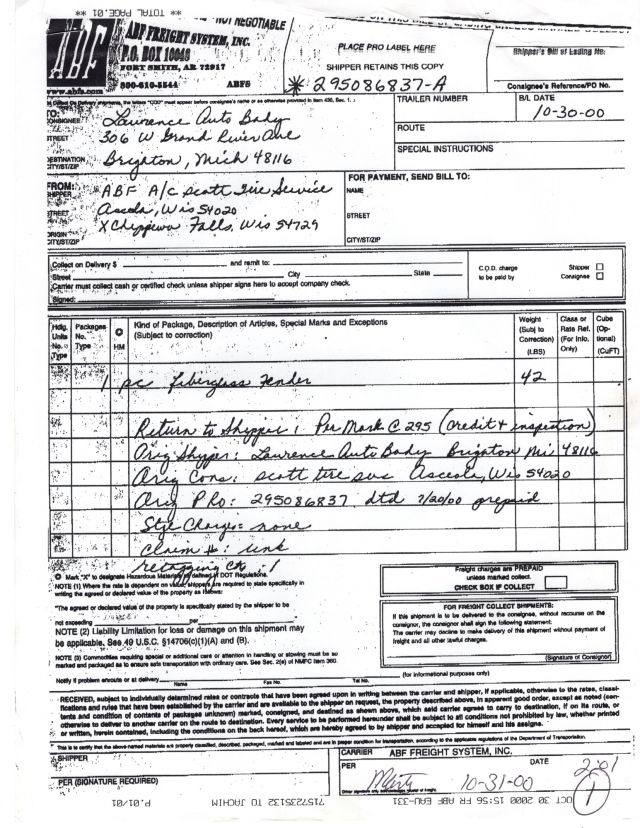 ** TOTAL PAGE.01 **
NOT NEGOTIABLE
ABF
www.abfs.com
ABF FREIGHT SYSTEM, INC.
P.O. BOX 10048
FORT SMITH, AR 72917
800-610-5544 ABFS
PLACE PRO LABEL HERE
SHIPPER RETAINS THIS COPY
* 295086837-A
Shipper's Bill of Lading No.
Consignee's Reference/PO No.
TRAILER NUMBER
B/L DATE
10-30-00
ROUTE
SPECIAL INSTRUCTIONS
TO:
CONSIGNEE Lawrence Auto Body
STREET 306 W Grand River Ave
DESTINATION Brighton, Mich 48116
CITY/ST/ZIP
FROM:
SHIPPER ABF A/C Scott Tire Service
STREET Asceola, Wis 54020
ORIGIN X Chippewa Falls, Wis 54729
CITY/ST/ZIP
FOR PAYMENT, SEND BILL TO:
NAME
STREET
CITY/ST/ZIP
Collect on Delivery $ and remit to:
Street City State
Carrier must collect cash or certified check unless shipper signs here to accept company check.
Signed:
C.O.D. charge to be paid by
Shipper
Consignee
Hdlg. Units No. Type
Packages No. Type
HM
Kind of Package, Description of Articles, Special Marks and Exceptions
(Subject to correction)
Weight (Subj to Correction) (LBS)
Class or Rate Ref. (For Info. Only)
Cube (Optional) (CuFT)
1 pc fiberglass Fender 42
Return to Shipper: Per Mark @ 295 (credit + inspection)
Orig Shipper: Lawrence Auto Body Brighton Mi 48116
Orig Cons: Scott tire svc Asceola, Wis 54020
Orig PRo: 295086837 dtd 7/20/00 prepaid
Stge Charges= none
Claim #: unk
retagging Ctr: 1
Mark "X" to designate Hazardous Materials as defined in DOT Regulations.
NOTE (1) Where the rate is dependent on value, shippers are required to state specifically in
writing the agreed or declared value of the property as follows:
"The agreed or declared value of the property is specifically stated by the shipper to be
not exceeding per
NOTE (2) Liability Limitation for loss or damage on this shipment may
be applicable. See 49 U.S.C. §14706(c)(1)(A) and (B).
NOTE (3) Commodities requiring special or additional care or attention in handling or stowing must be so
marked and packaged as to ensure safe transportation with ordinary care. See Sec. 2(e) of NMFC Item 360.
Freight charges are PREPAID
unless marked collect.
CHECK BOX IF COLLECT
FOR FREIGHT COLLECT SHIPMENTS:
If this shipment is to be delivered to the consignee, without recourse on the
consignor, the consignor shall sign the following statement:
The carrier may decline to make delivery of this shipment without payment of
freight and all other lawful charges.
(Signature of Consignor)
Notify if problem enroute or at delivery
Name Fax No. Tel No.
(for informational purposes only)
RECEIVED, subject to individually determined rates or contracts that have been agreed upon in writing between the carrier and shipper, if applicable, otherwise to the rates, classi-
fications and rules that have been established by the carrier and are available to the shipper on request, the property described above, in apparent good order, except as noted (con-
tents and condition of contents of packages unknown) marked, consigned, and destined as shown above, which said carrier agrees to carry to destination, if on its route, or
otherwise to deliver to another carrier on the route to destination. Every service to be performed hereunder shall be subject to all conditions not prohibited by law, whether printed
or written, herein contained, including the conditions on the back hereof, which are hereby agreed to by shipper and accepted for himself and his assigns.
This is to certify that the above-named materials are properly classified, described, packaged, marked and labeled and are in proper condition for transportation, according to the applicable regulations of the Department of Transportation.
SHIPPER
PER (SIGNATURE REQUIRED)
CARRIER ABF FREIGHT SYSTEM, INC.
PER
DATE
10-31-00
1
OCT 30 2000 15:56 FR ABF EAU-331
7157235132 TO JACHIM
P.01/01